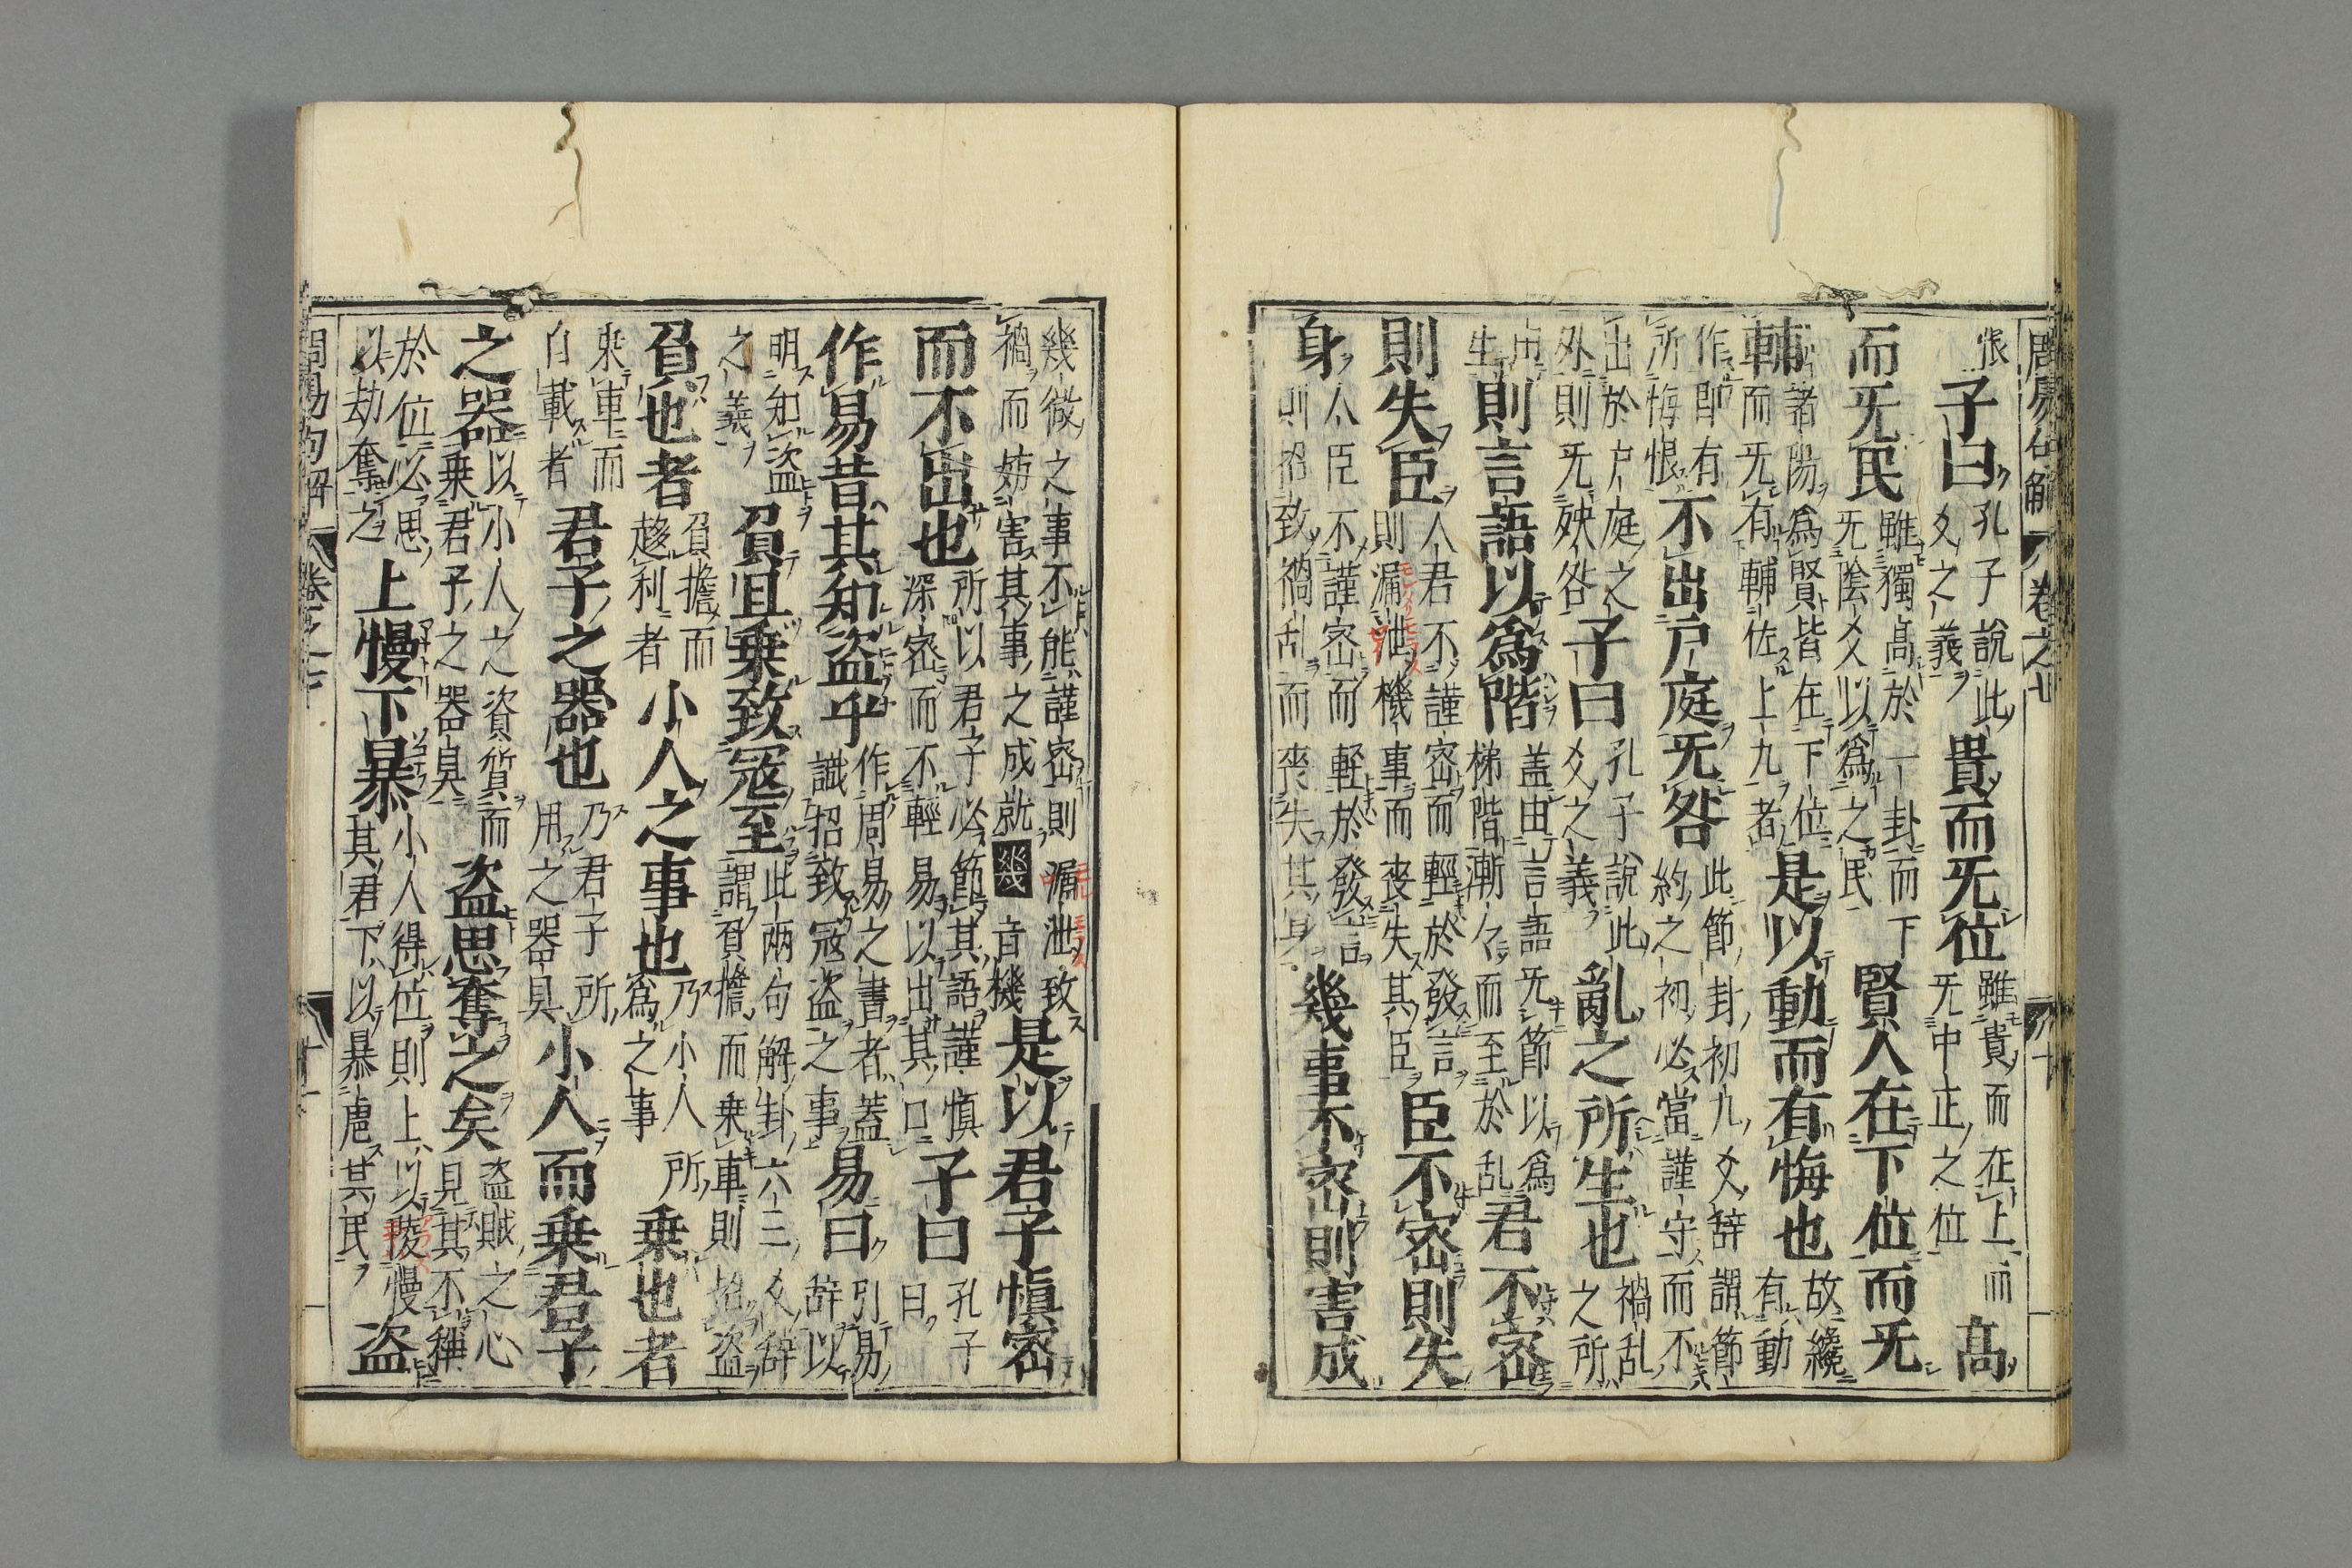 周易句解 卷之七 十
恨 子曰 孔子說此爻之義 貴而无位 雖貴而在上而无中正之位 高
而无民 雖獨高於一卦而下无陰爻以為之民 賢人在下位而无
輔 諸陽為賢皆在下位而无有輔佐上九者 是以動而有悔也 故纔有動
作即有所悔恨 不出戶庭无咎 此節卦初九爻辞謂節約之初必當謹守而不
出於戶庭之外則无殃咎 子曰 孔子說此爻之義 亂之所生也 禍乱之所
由生 則言語以為階 盖由言語无節以為梯階漸々而至於乱 君不密
則失臣 人君不謹密而輕於發言則漏泄機事而喪失其臣 臣不密則失
身 人臣不謹密而軽於發言則招致禍乱而喪失其身 幾事不密則害成
幾微之事不能謹密則漏泄致禍而妨害其事之成就 幾 音機 是以君子慎密
而不出也 所以君子必節其語謹慎深密而不輕易以出其口 子曰 孔子曰
作易昔其知盗乎 作周易之書者蓋識招致冦盗之事 易曰 引易辞以
明知盗之義 負且乗致冦至 此兩句解卦六三爻辞謂負擔而乗車則招盗
負也者 負擔而趍利者 小人之事也 乃小人所為之事 乗也者
乗車而自載者 君子之器也 乃君子所用之器具 小人而乗君子
之器 以小人之資質而乗君子之器具 盗思奪之矣 盗賊之心見其不稱
於位必思以劫奪之 上慢下暴 小人得位則上以陵慢其君下以暴虐其民 盗
周易句解 卷之七 十一